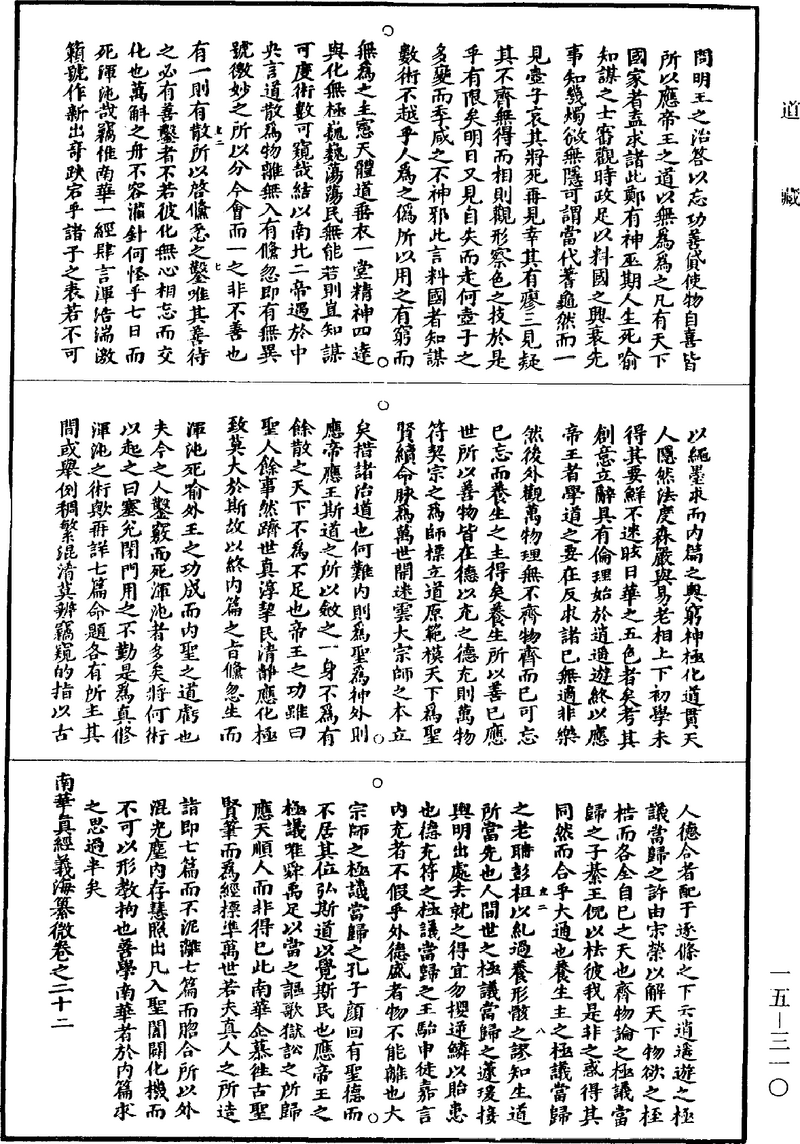 道藏
問明王之治答以忘功善貸使物自喜皆
所以應帝王之道以無為為之凡有天下
國家者盍求諸此鄭有神巫期人生死喻
知謀之士審觀時政足以料國之興衰先
事知幾燭微無隱可謂當代蓍龜然而一
見壺子哀其將死再見幸其有廖三見疑
其不齊無得而相則觀形察色之技於是
乎有限矣明日又見自失而走何壺子之
多變而季咸之不神邪此言料國者知謀
數術不越乎人為之偽所以用之有窮而
無為之主憲天體道垂衣一堂精神四達
與化無極巍巍蕩蕩民無能若則豈知謀
可度術數可窺哉結以南北二帝遇於中
央言道散為物離無入有儵忽即有無異
號微妙之所以分今會而一之非不善也
有一則有散所以啓儵忽之鑿唯其善待
之必有善鑿者不若彼化無心相忘而交
化也萬斛之舟不容灌針何怪乎七日而
死渾沌哉竊惟南華一經肆言渾浩湍激
籟號作新出奇跌宕乎諸子之表若不可
以繩墨求而內篇之奧窮神極化道貫天
人隱然法度森嚴與易老相上下初學未
得其要鮮不迷眩日華之五色者矣考其
創意立辭具有倫理始於逍遙遊終以應
帝王者學道之要在反求諸己無適非樂
然後外觀萬物理無不齊物齊而己可忘
己忘而養生之主得矣養生所以善己應
世所以善物皆在德以充之德充則萬物
符契宗之為師標立道原範模天下為聖
賢續命脉為萬世開迷雲大宗師之本立
矣措諸治道也何難內則為聖為神外則
應帝應王斯道之所以斂之一身不為有
餘散之天下不為不足也帝王之功雖曰
聖人餘事然躋世真淳挈民清靜應化極
致莫大於斯故以終內篇之旨儵忽生而
渾沌死喻外王之功成而內聖之道虧也
夫今之人鑿竅而死渾沌者多矣將何術
以起之曰塞兌閉門用之不勤是為真修
渾沌之術歟再詳七篇命題各有所主其
間或舉倒稠繁混清莫辨竊窺的指以古
人德合者配于逐條之下云逍遙遊之極
議當歸之許由宋榮以解天下物欲之桎
梏而各全自己之天也齊物論之極議當
歸之子綦王倪以袪彼我是非之惑得其
同然而合乎大通也養生主之極議當歸
之老聃彭祖以糺過養形骸之謬知生道
所當先也人間世之極議當歸之蘧瑗接
輿明出處去就之得宜勿攖逆鱗以貽患
也德充符之極議當歸之王駘申徒嘉言
內充者不假乎外德盛者物不能離也大
宗師之極議當歸之孔子顏回有聖德而
不居其位弘斯道以覺斯民也應帝王之
極議唯舜禹足以當之謳歌獄訟之所歸
應天順人而非得已此南華企慕徃古聖
賢筆而為經標準萬世若夫真人之所造
詣即七篇而不泥離七篇而脗合所以外
混光塵內存慧照出凡入聖闔闢化機而
不可以形教拘也善學南華者於內篇求
之思過半矣
南華真經義海纂微卷之二十二
一五—三一〇